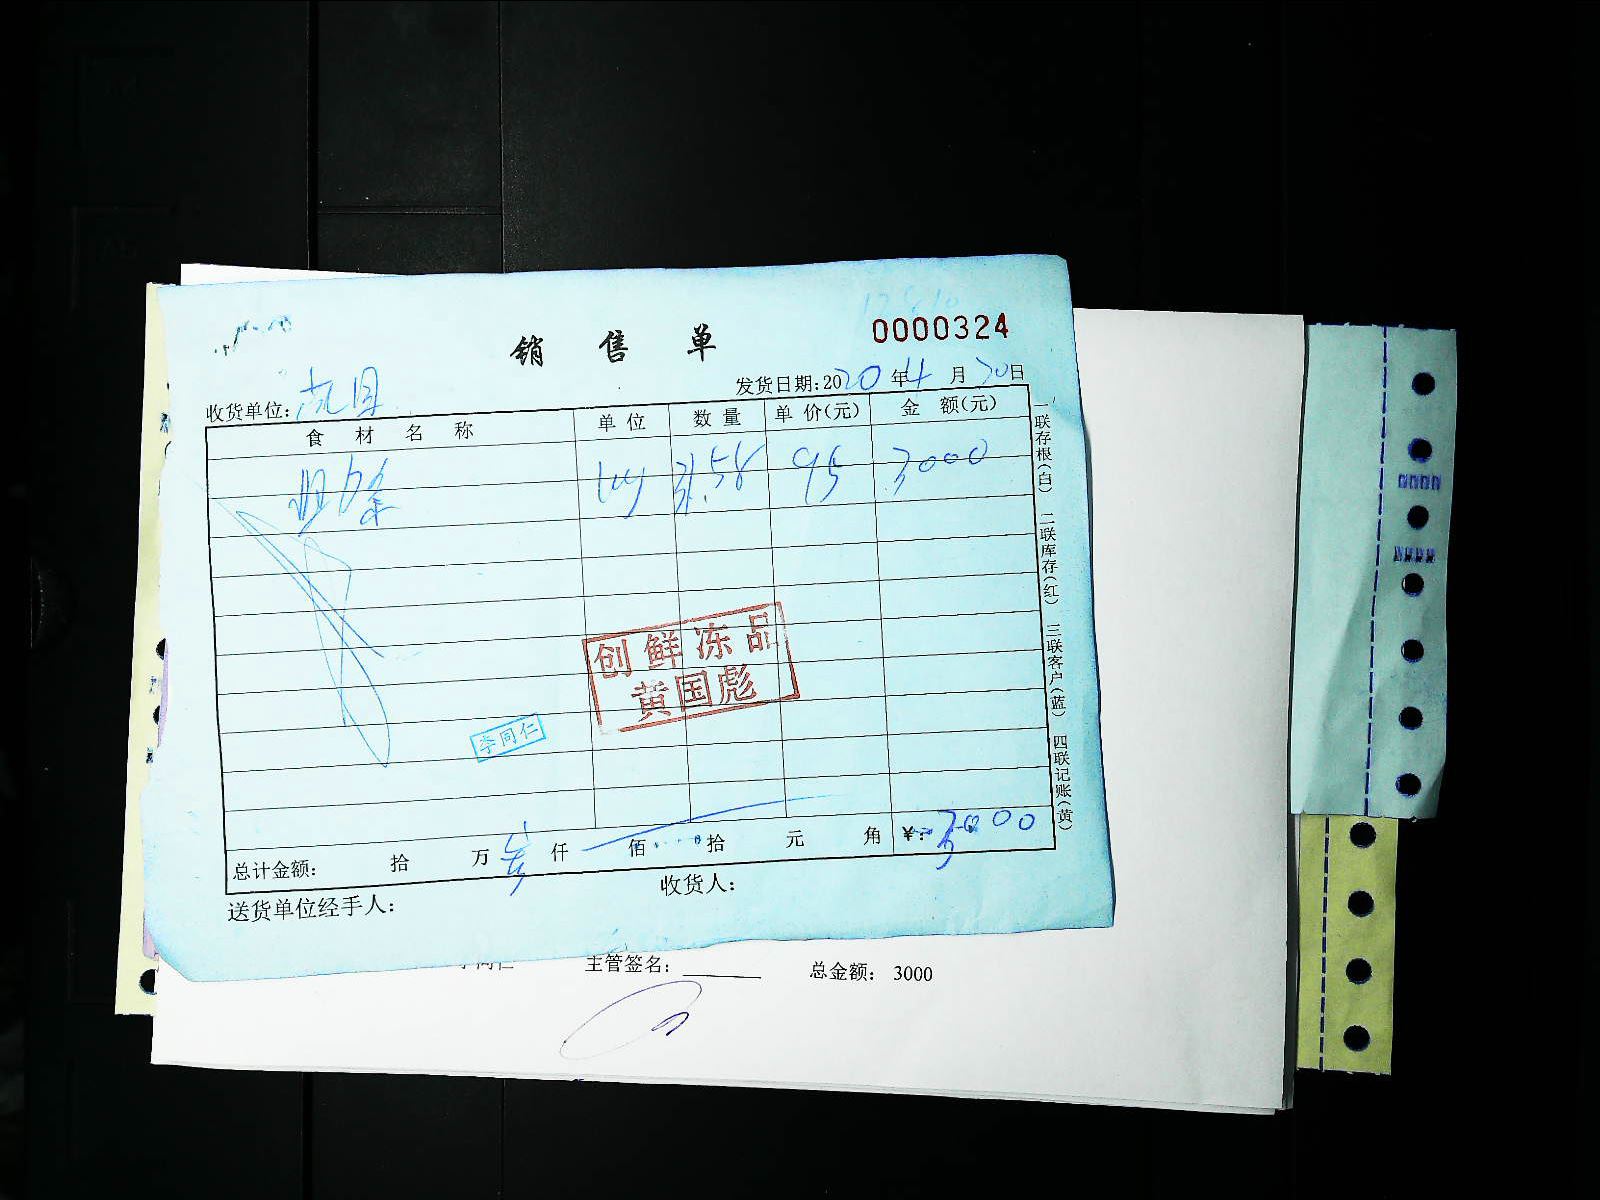 销售单
0000324
发货日期:2020年4月30日
收货单位:
食材名称 单位 数量 单价(元) 金额(元)
kg 31.58 95 3000
创鲜冻品
黄国彪
李同仁
总计金额: 拾 万 仟 佰 拾 元 角 ¥:3000
送货单位经手人: 收货人:
一联存根(白) 二联库存(红) 三联客户(蓝) 四联记账(黄)
主管签名: 总金额: 3000